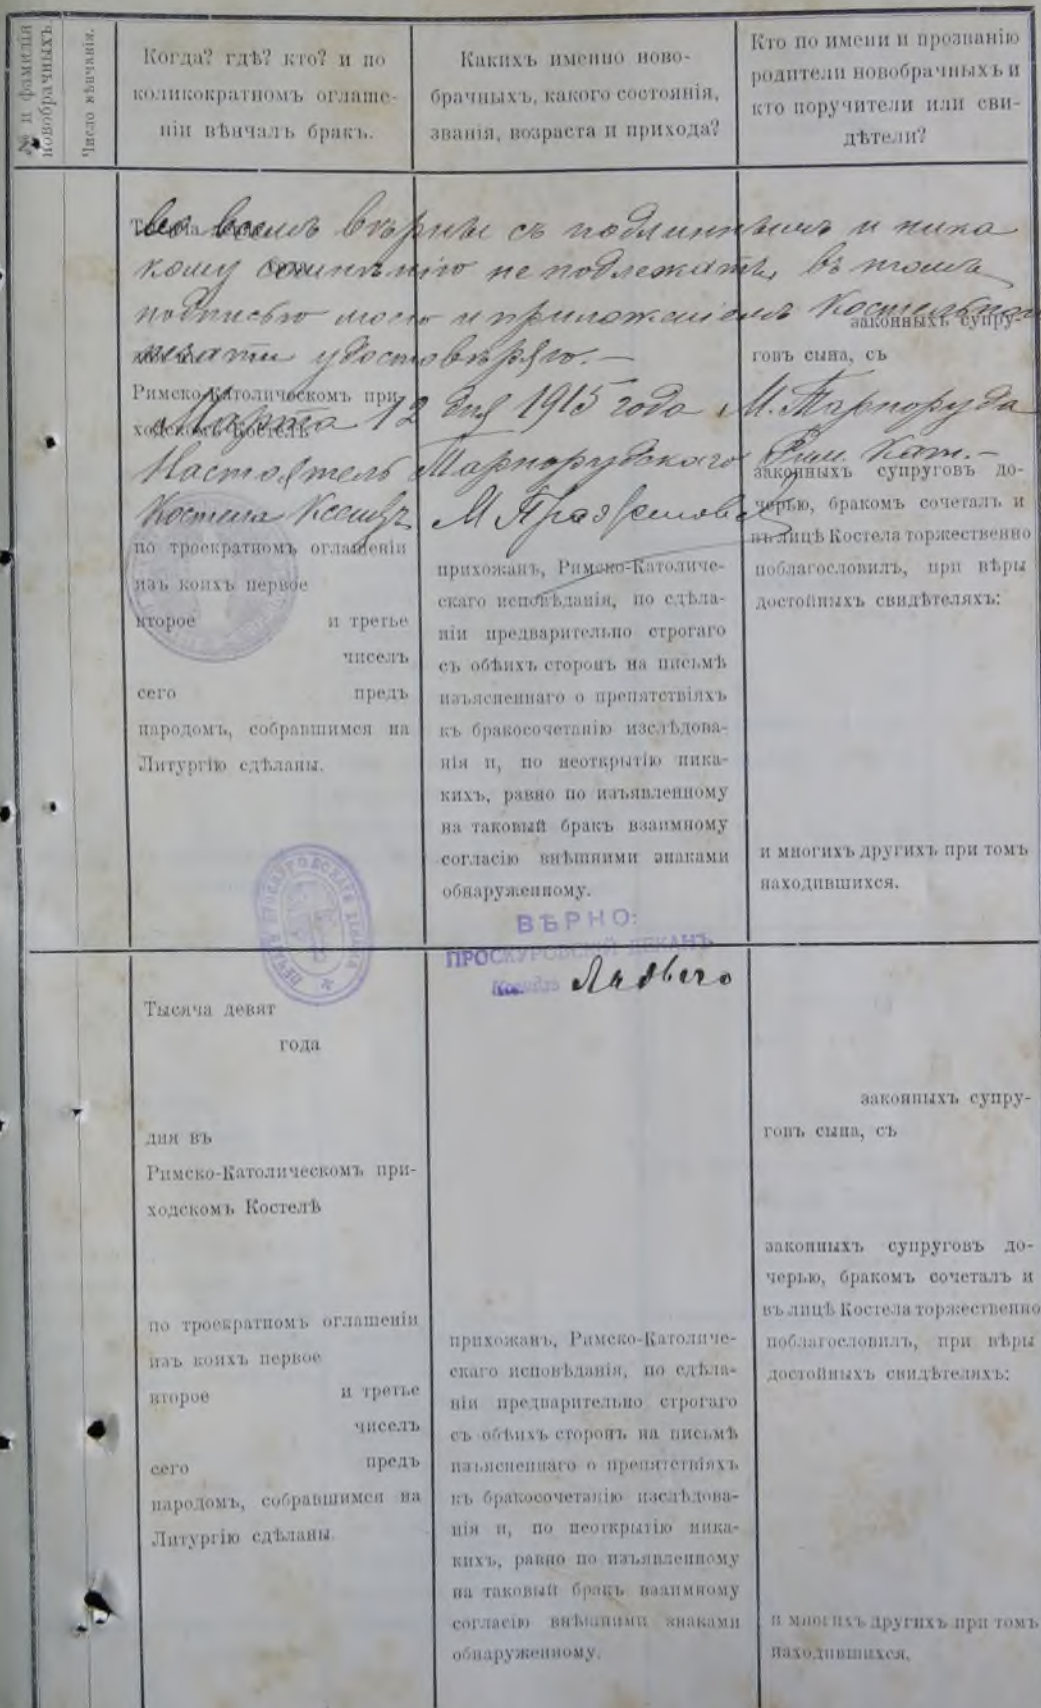 № и фамилія
новобрачныхъ
Число вѣнчанія.
Когда? гдѣ? кто? и по
коликократномъ оглаше-
ніи вѣнчалъ бракъ.
Какихъ именно ново-
брачныхъ, какого состоянія,
званія, возраста и прихода?
Кто по имени и прозванію
родители новобрачныхъ и
кто поручители или сви-
дѣтели?
во всемъ вѣрны съ подлиннымъ и ника
кому сомнѣнію не подлежатъ, въ томъ
подписью моею и приложеніемъ Костельной
печати удостовѣряю. —
Марта 12 дня 1915 года М. Тарноруда
Настоятель Тарнорудскаго Рим. Кат. —
Костела Ксендзъ М
законныхъ супру-
говъ сына, съ
Римско-Католическомъ при-
ходскомъ Костелѣ
законныхъ супруговъ до-
черью, бракомъ сочеталъ и
въ лицѣ Костела торжественно
поблагословилъ, при вѣры
достойныхъ свидѣтеляхъ:
по троекратномъ оглашеніи
изъ коихъ первое
второе и третье
чиселъ
сего предъ
народомъ, собравшимся на
Литургію сдѣланы.
прихожанъ, Римско-Католиче-
скаго исповѣданія, по сдѣла-
ніи предварительно строгаго
съ обѣихъ сторонъ на письмѣ
изъясненнаго о препятствіяхъ
къ бракосочетанію изслѣдова-
нія и, по неоткрытію ника-
кихъ, равно по изъявленному
на таковый бракъ взаимному
согласію внѣшними знаками
обнаруженному.
и многихъ другихъ при томъ
находившихся.
ВѢРНО:
ПРОСКУРОВСКІЙ ДЕКАНЪ
Ксендзъ
Тысяча девят
года
дня въ
Римско-Католическомъ при-
ходскомъ Костелѣ
по троекратномъ оглашеніи
изъ коихъ первое
второе и третье
чиселъ
сего предъ
народомъ, собравшимся на
Литургію сдѣланы.
прихожанъ, Римско-Католиче-
скаго исповѣданія, по сдѣла-
ніи предварительно строгаго
съ обѣихъ сторонъ на письмѣ
изъясненнаго о препятствіяхъ
къ бракосочетанію изслѣдова-
нія и, по неоткрытію ника-
кихъ, равно по изъявленному
на таковый бракъ взаимному
согласію внѣшними знаками
обнаруженному.
законныхъ супру-
говъ сына, съ
законныхъ супруговъ до-
черью, бракомъ сочеталъ и
въ лицѣ Костела торжественно
поблагословилъ, при вѣры
достойныхъ свидѣтеляхъ:
и многихъ другихъ при томъ
находившихся.